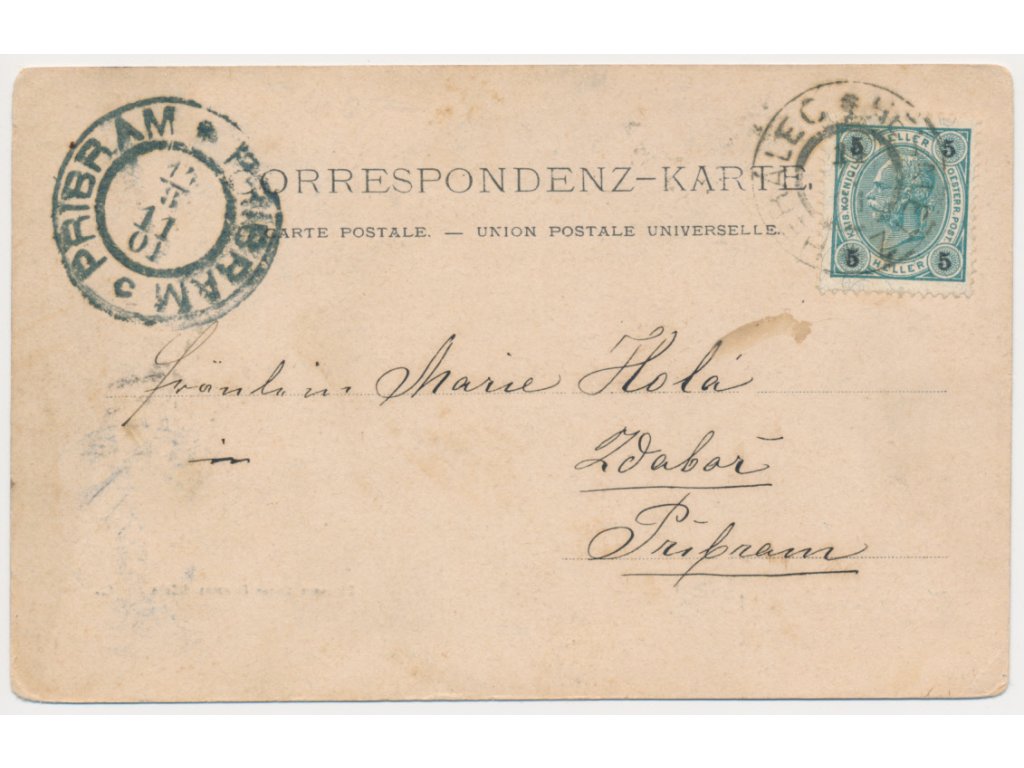 PŘIBRAM * PRIBRAM
11
01
CORRESPONDENZ-KARTE.
CARTE POSTALE. — UNION POSTALE UNIVERSELLE.
5 HELLER 5
KAIS. KOENIGL. OESTERR. POST
5 HELLER 5
Fräulein Marie Holá
in Zdaboř
Přibram